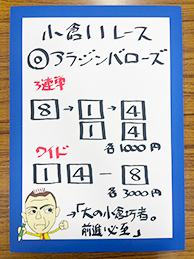 小倉11レース
◎アラジンバローズ
3連単
8→1→4
1 4
各1000円
ワイド
1 4 — 8
各3000円
→「大の小倉巧者。
前進必至」